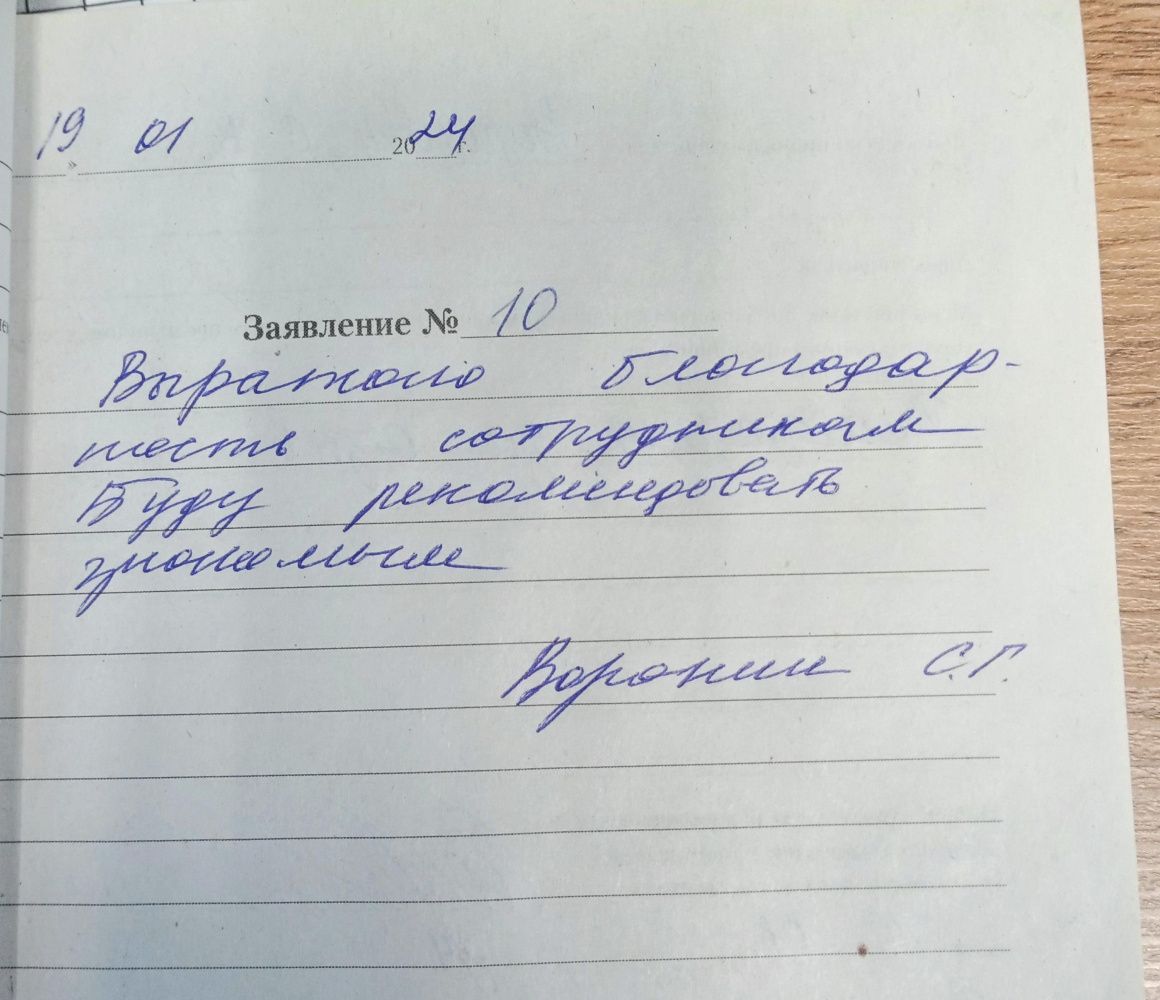 19 » 01 2024 г.
Заявление № 10
Выражаю благодар-
ность сотрудникам
Буду рекомендовать
знакомым
Воронин С.Г.